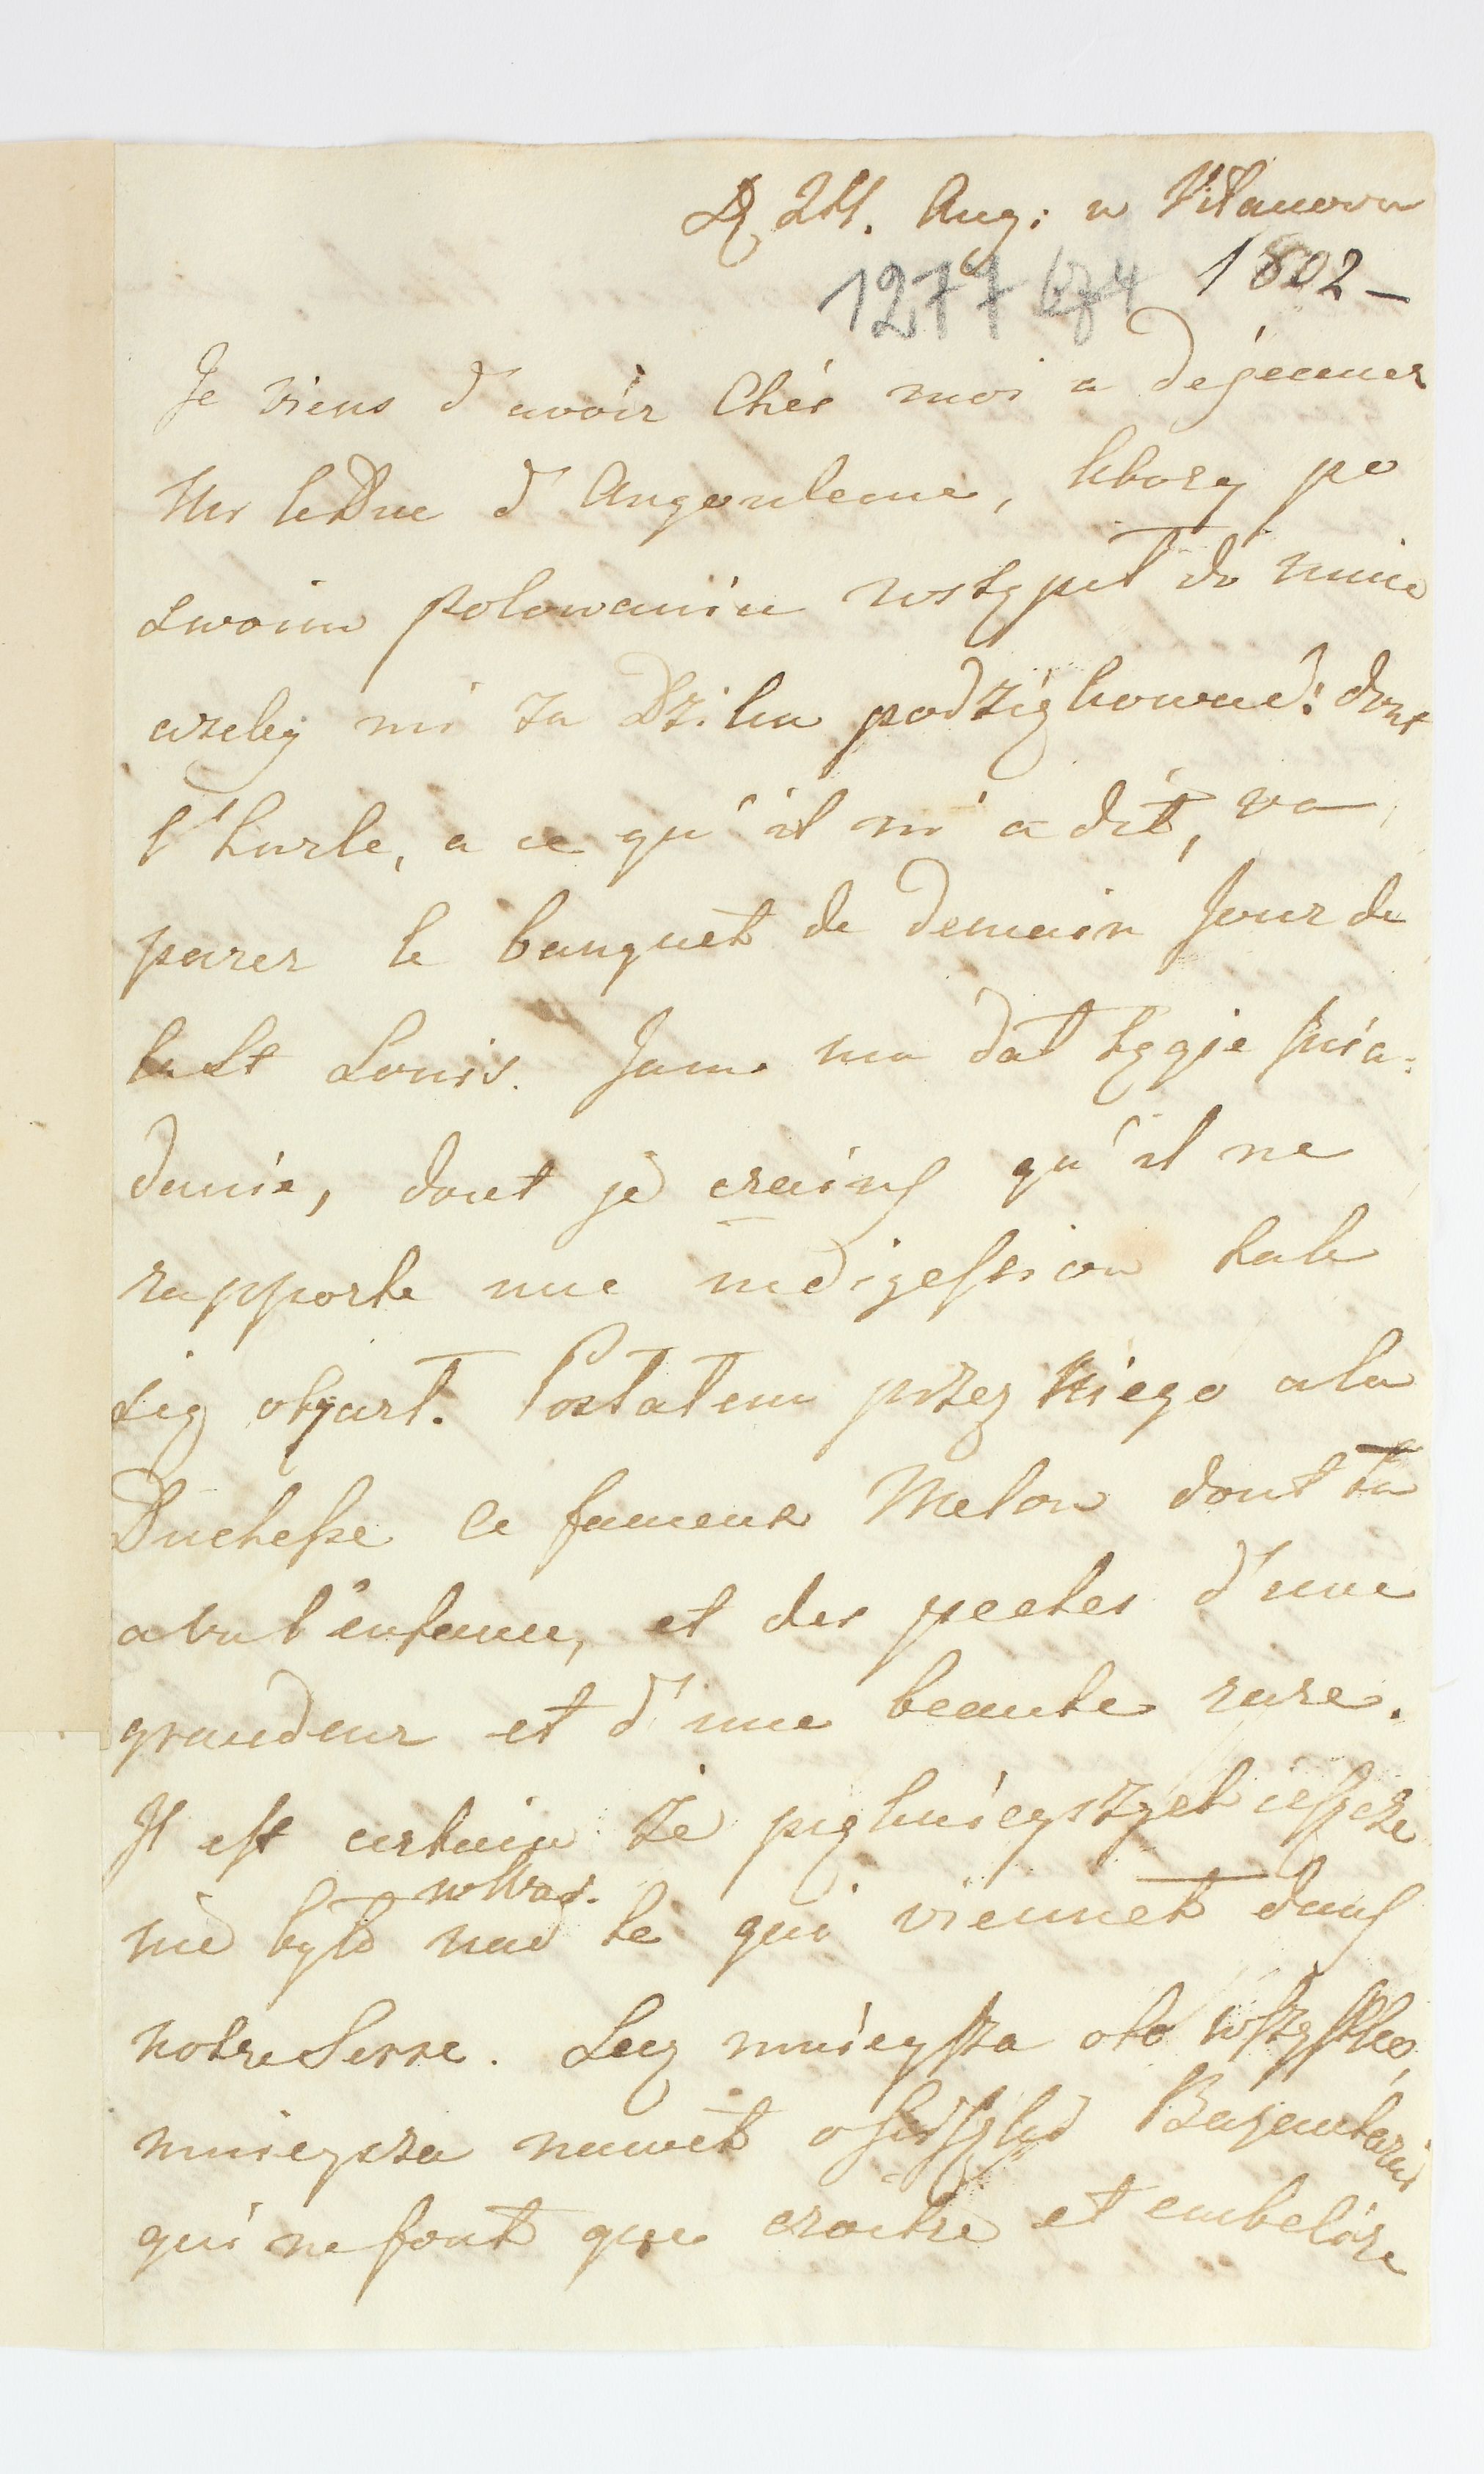 D 24. Aug: w Vilanova
1277 1802 –
Je viens d'avoir Chés moi a dejeuner
Mr le Duc d'Angouleme, ktory po
swoim polowaniu wstąpił do mnie
azeby mi za Dzika podziękował! dont
l'hurle, a ce qu'il m'a dit, va
parer le banquet de demain Jour de
la St Louis. Jam mu dał tęgie snia:
danie, dont je crains qu'il ne
rapporte une indigestion tak
się obżarł. Posłałem przez Niego a la
Duchesse le fameux Melon dont tu
a vu l'enfance, et des peches d'une
grandeur et d'une beaute rare.
Il est certain że pięknieyszych ieszcze
nie było w Kraj. nad te qui viennet dans
notre Serre. Lecz mnieysza oto wszystko,
mnieysza nawet Bazantarni
qui ne font que croitre et embelire